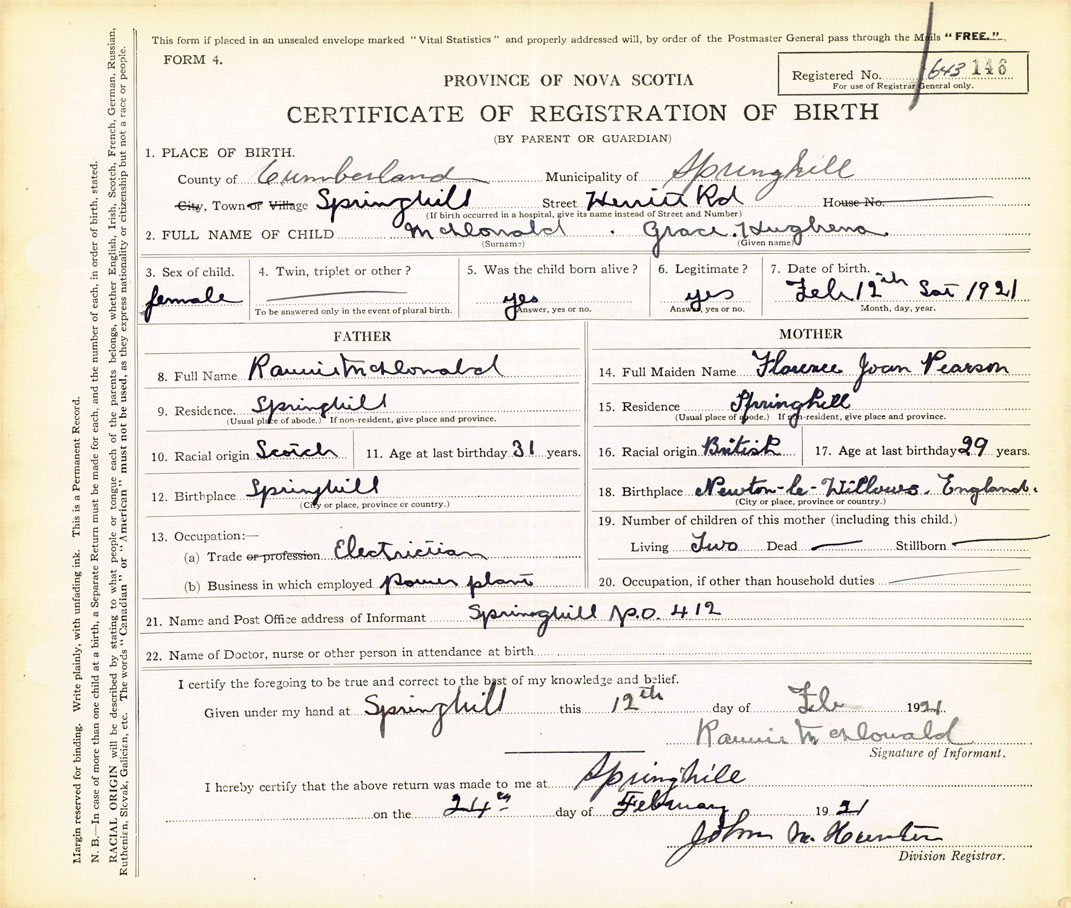 This form if placed in an unsealed envelope marked "Vital Statistics" and properly addressed will, by order of the Postmaster General pass through the Mails "FREE."
FORM 4.
Registered No. 643 146
For use of Registrar General only.
PROVINCE OF NOVA SCOTIA
CERTIFICATE OF REGISTRATION OF BIRTH
(BY PARENT OR GUARDIAN)
1. PLACE OF BIRTH.
County of Cumberland Municipality of Springhill
City, Town or Village Springhill Street Herritt Rd House No.
(If birth occurred in a hospital, give its name instead of Street and Number)
2. FULL NAME OF CHILD McDonald . Grace Hughena
(Surname) (Given name)
3. Sex of child. 4. Twin, triplet or other? 5. Was the child born alive? 6. Legitimate? 7. Date of birth.
female yes yes Feb 12th Sat 1921
To be answered only in the event of plural birth. Answer, yes or no. Answer, yes or no. Month, day, year.
FATHER
8. Full Name Rannie McDonald
9. Residence. Springhill
(Usual place of abode.) If non-resident, give place and province.
10. Racial origin Scotch 11. Age at last birthday 31 years.
12. Birthplace Springhill
(City or place, province or country.)
13. Occupation:—
(a) Trade or profession Electriction
(b) Business in which employed power plant
MOTHER
14. Full Maiden Name Florence Joan Pearson
15. Residence Springhill
(Usual place of abode.) If non-resident, give place and province.
16. Racial origin British 17. Age at last birthday 29 years.
18. Birthplace Newton-le-Willows. England.
(City or place, province or country.)
19. Number of children of this mother (including this child.)
Living Two Dead — Stillborn —
20. Occupation, if other than household duties
21. Name and Post Office address of Informant Springhill P.O. 412
22. Name of Doctor, nurse or other person in attendance at birth
I certify the foregoing to be true and correct to the best of my knowledge and belief.
Given under my hand at Springhill this 12th day of Feb 1921
Rannie McDonald
Signature of Informant.
I hereby certify that the above return was made to me at Springhill
on the 24th day of February 1921
John M. Hunter
Division Registrar.
Margin reserved for binding. Write plainly, with unfading ink. This is a Permanent Record.
N. B.—In case of more than one child at a birth, a Separate Return must be made for each, and the number of each, in order of birth, stated.
RACIAL ORIGIN will be described by stating to what people or tongue each of the parents belongs, whether English, Irish, Scotch, French, German, Russian,
Ruthenian, Slovak, Galician, etc. The words "Canadian" or "American" must not be used, as they express nationality or citizenship but not a race or people.